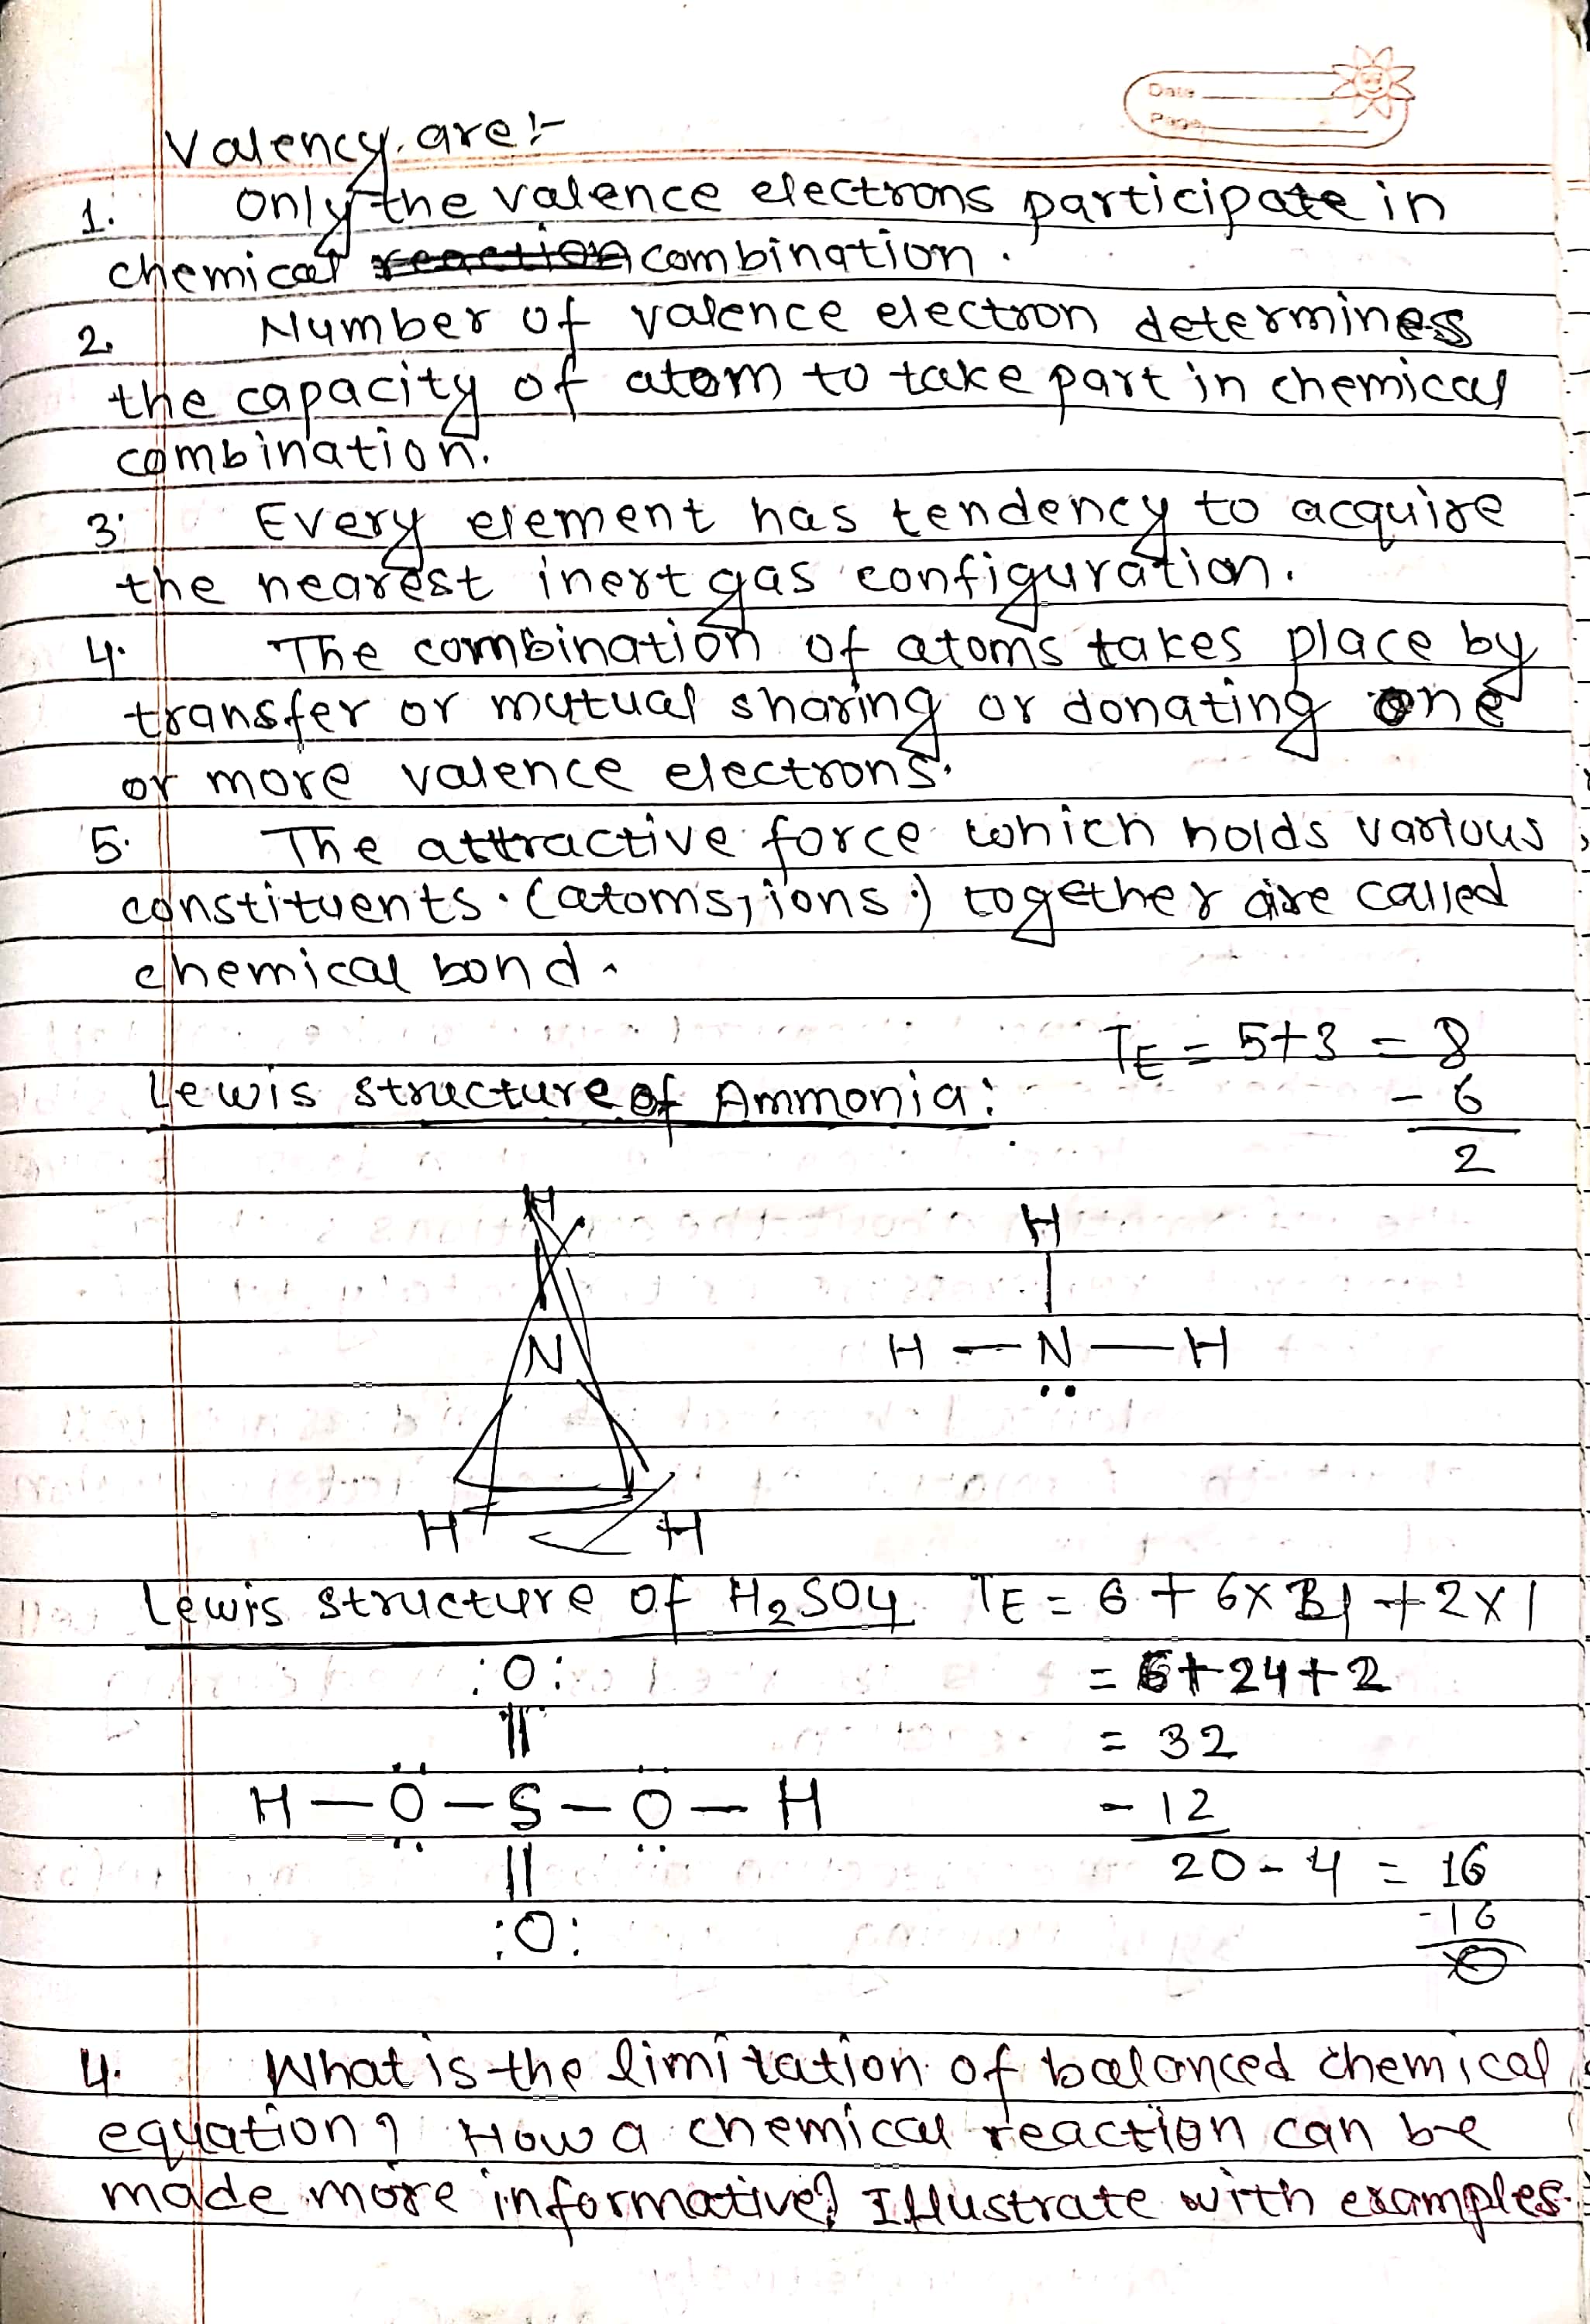 Date
Page
Valency are:-
1. Only the valence electrons participate in
chemical reaction combination.
2. Number of valence electron determines
the capacity of atom to take part in chemical
combination.
3. Every element has tendency to acquire
the nearest inert gas configuration.
4. The combination of atoms takes place by
transfer or mutual sharing or donating one
or more valence electrons.
5. The attractive force which holds various
constituents (atoms, ions) together are called
chemical bond.
TE = 5+3 = 8
Lewis structure of Ammonia:
- 6
2
H
N
H H
H
|
H — N — H
..
Lewis structure of H₂SO₄ TE = 6 + 6x4 + 2x1
:O: = 6+24+2
|| = 32
H — Ö — S — Ö — H - 12
|| 20 - 4 = 16
:O: -16
0
4. What is the limitation of balanced chemical
equation? How a chemical reaction can be
made more informative? Illustrate with examples.